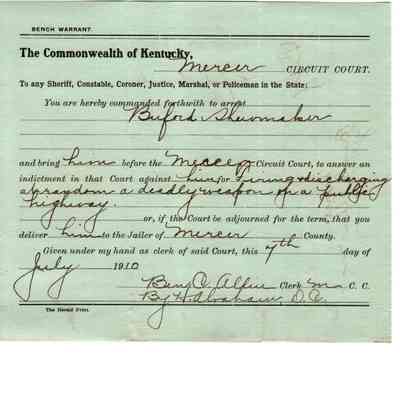 BENCH WARRANT.
The Commonwealth of Kentucky,
Mercer CIRCUIT COURT.
To any Sheriff, Constable, Coroner, Justice, Marshal, or Policeman in the State:
You are hereby commanded forthwith to arrest
Buford Shewmaker
and bring him before the Mercer Circuit Court, to answer an
indictment in that Court against him for firing & discharging
at random a deadly weapon on a public
highway.
or, if the Court be adjourned for the term, that you
deliver him to the Jailer of Mercer County.
Given under my hand as clerk of said Court, this 7th day of
July 1910
Ben C. Allin Clerk M C. C.
By Abraham, D. C.
The Herald Press.